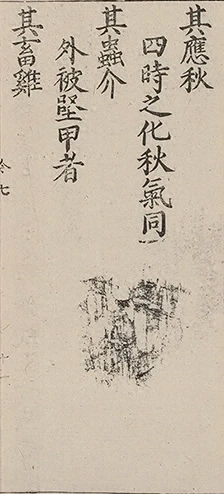 其應秋
四時之化秋氣同
其蟲介
外被堅甲者
其畜雞